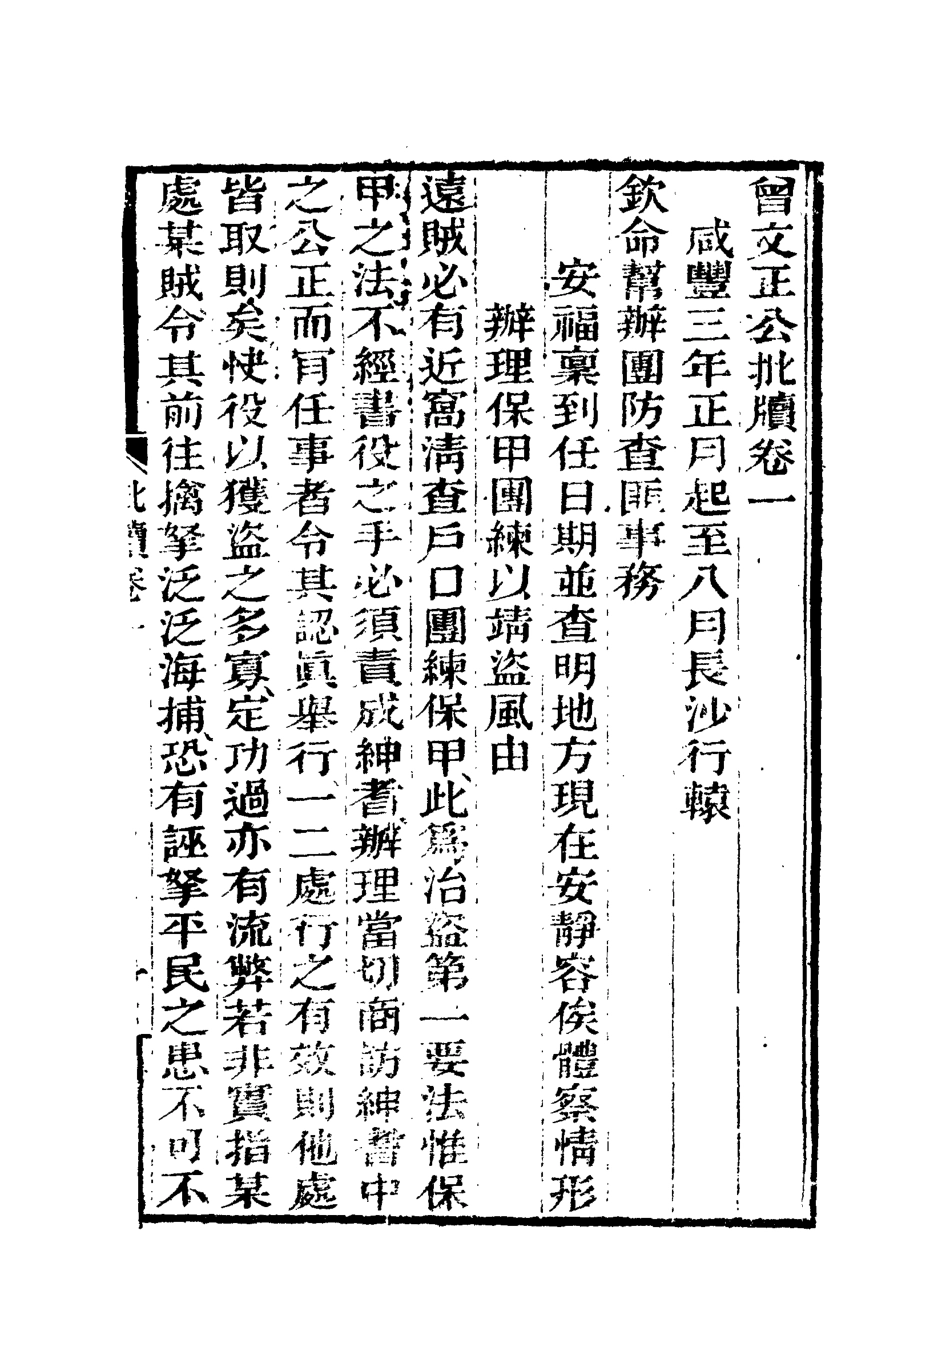 曾文正公批牘卷一
咸豐三年正月起至八月長沙行轅
欽命幫辦團防查匪事務
安福稟到任日期並查明地方現在安靜容俟體察情形
辦理保甲團練以靖盜風由
遠賊必有近窩清查戶口團練保甲、此為治盜第一要法惟保
甲之法、不經書役之手必須責成紳耆、辦理當切商訪紳耆中
之公正而肎任事者令其認眞舉行、一二處行之有效則他處
皆取則矣、快役以獲盜之多寡、定功過亦有流弊若非實指某
處某賊、令其前往擒拏泛泛海捕、恐有誣拏平民之患不可不
批牘卷一